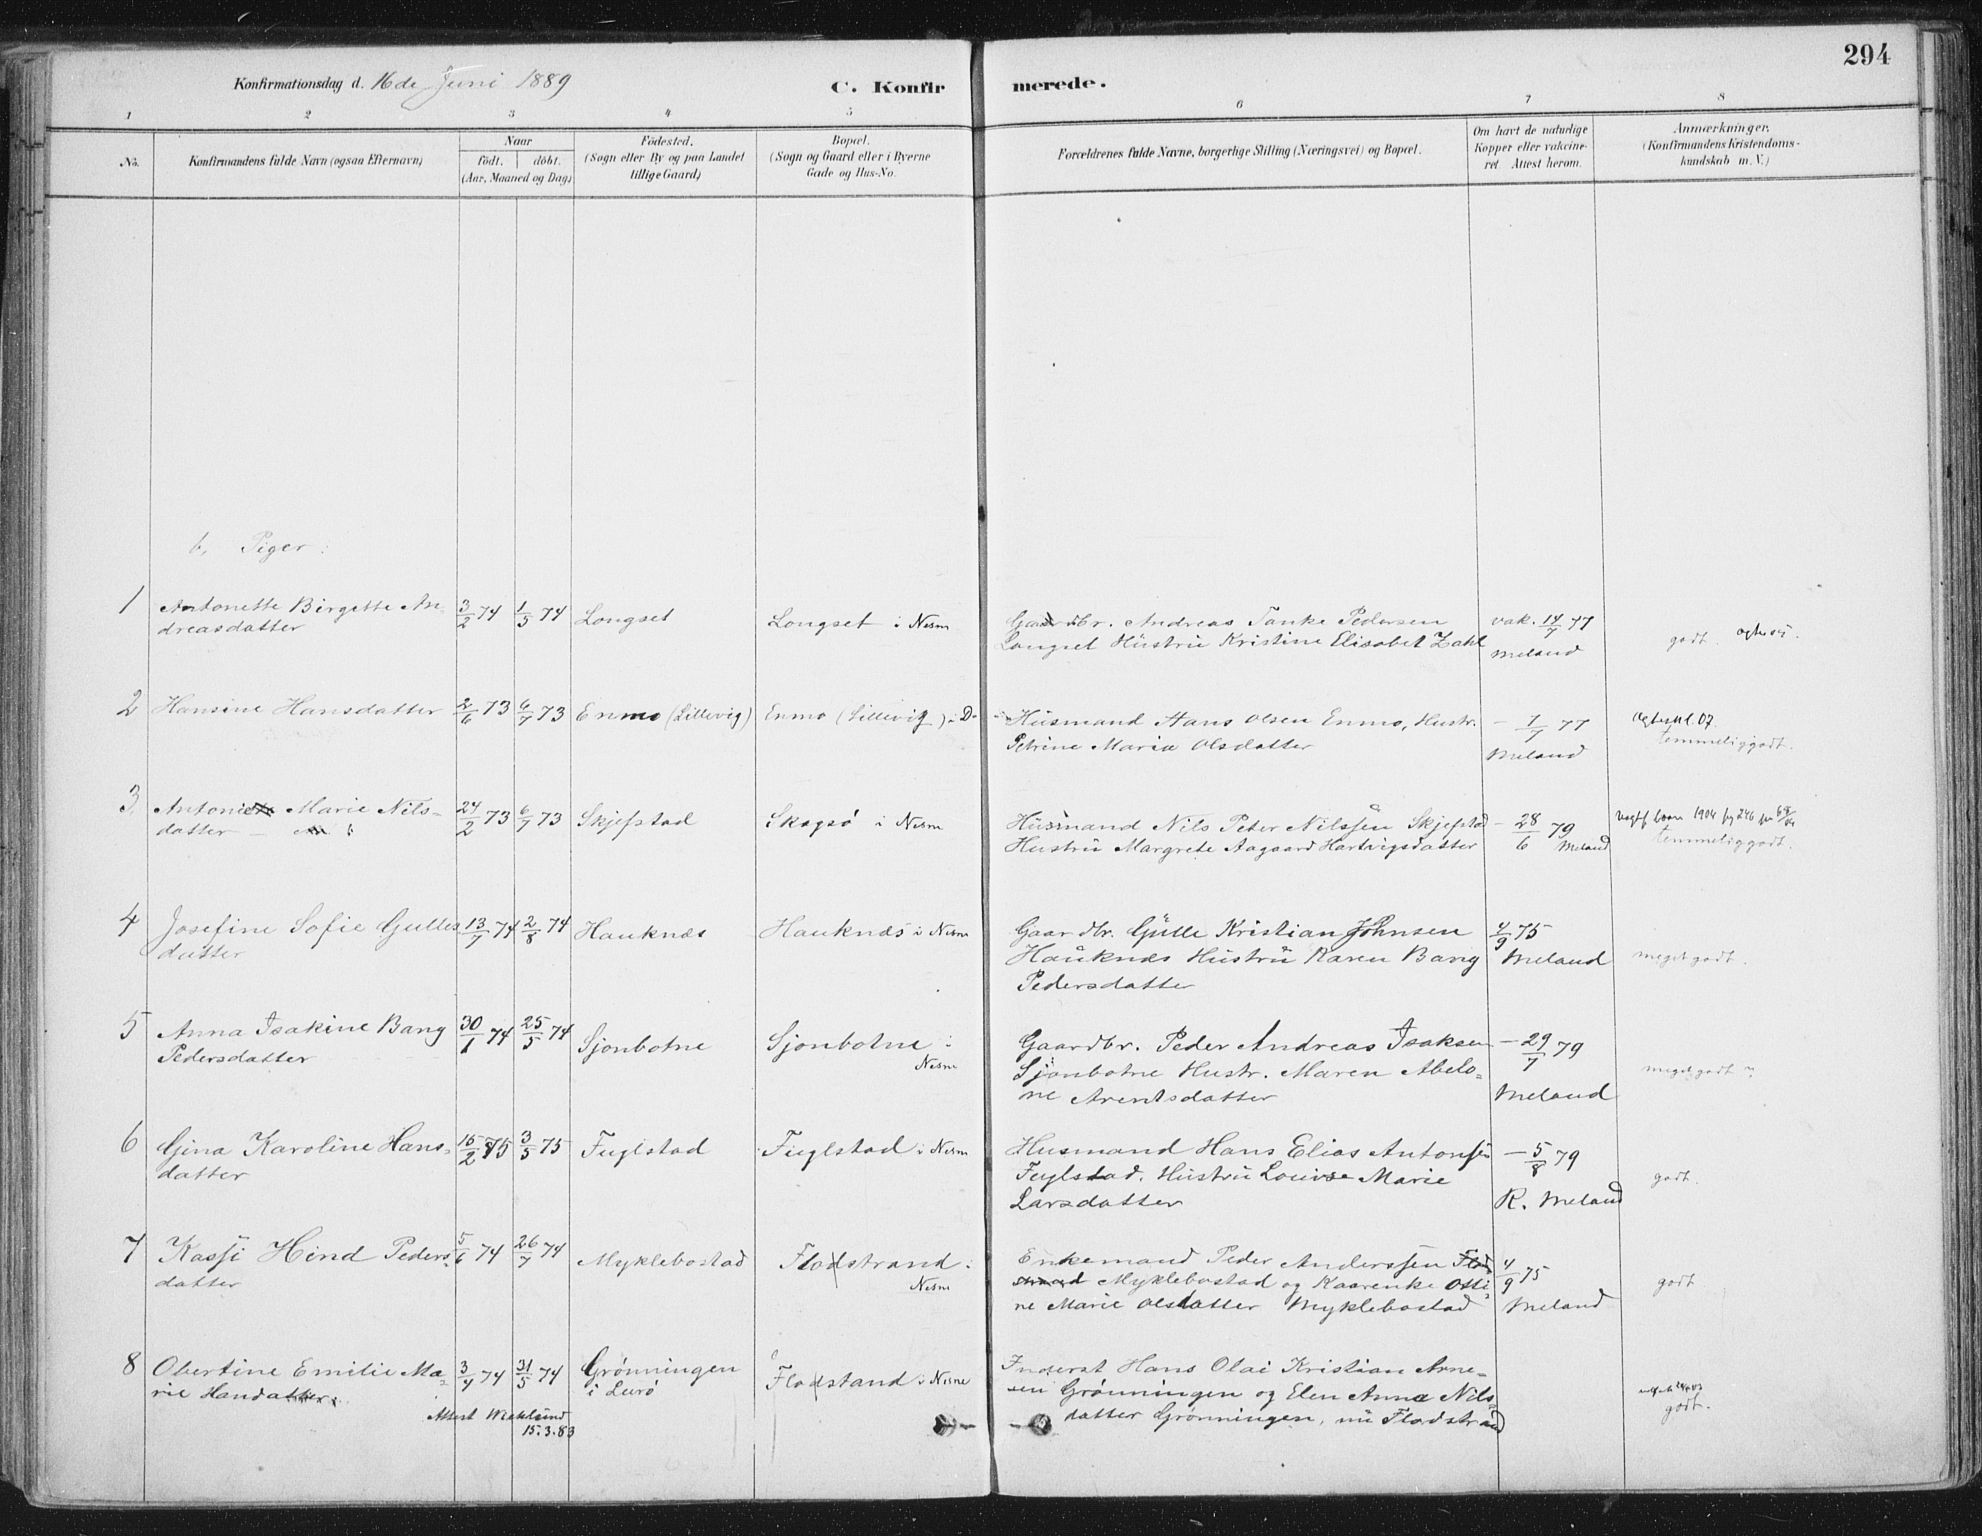 294
Konfirmationsdag d. 16de Juni 1889
C. Konfirmerede.
1 2 3 4 5 6 7 8
No.
Konfirmandens fulde Navn (ogsaa Efternavn)
Naar
födt. döbt.
(Aar, Maaned og Dag)
Födested.
(Sogn eller By og paa Landet
tillige Gaard)
Bopæl.
(Sogn og Gaard eller i Byerne
Gade og Hus-No.
Forældrenes fulde Navne, borgerlige Stilling (Næringsvei) og Bopæl.
Om havt de naturlige
Kopper eller vakcine-
ret. Attest herom.
Anmærkninger.
(Konfirmandens Kristendoms-
kundskab m. V.)
b, Piger:
1 Antonette Birgitte An- 3/2 74 1/5 74 Longset Longset i Nesne Gaardbr. Andreas Tanke Pedersen vak. 14/7 77
dreasdatter Longset Hustru Kristine Elisabet Zahl Meland godt.
2 Hansine Hansdatter 2/6 73 6/7 73 Enmo (Lillevig) Enmo (Lillevig) i D- Husmand Hans Olsen Enmo, Hustr. - 1/7 77
Petrine Maria Olsdatter Meland temmelig godt.
3 Antonie Marie Nils- 24/2 73 6/7 73 Skjefstad Skogsö i Nesne Husmand Nils Peter Nilssen Skjefstad - 28/6 79
datter Hustru Margrete Aagaard Hartvigsdatter Meland temmelig godt.
4 Josefine Sofie Gulles 13/7 74 2/8 74 Hauknæs Hauknæs i Nesne Gaardbr. Gulle Kristian Johnsen 4/9 75
datter Hauknæs Hustru Karen Bang Meland meget godt.
Pedersdatter
5 Anna Isakine Bang 30/1 74 25/5 74 Sjonbotne Sjonbotne i Gaardbr. Peder Andreas Isaksen - 29/7 79
Pedersdatter Nesne Sjonbotne Hustr. Maren Abelo- meget godt
ne Arentsdatter Meland
6 Gina Karoline Hans- 15/2 75 3/5 75 Fuglstad Fuglstad i Nesne Husmand Hans Elias Antonsen - 5/8 79
datter Fuglstad. Hustru Lovise Marie godt.
Larsdatter R. Meland
7 Kassi Hind Peders- 5/6 74 26/7 74 Myklebostad Flodstrand i Enkemand Peder Anderssen Flod 4/9 75
datter Nesne strand Myklebostad og Kaarenke Otti- godt
ne Marie Olsdatter Myklebostad Meland
8 Obertine Emilie Ma- 3/4 74 31/5 74 Grönningen Flodstand i Nesne Inderst Hans Olai Kristian Arne-
rie Handatter i Lurö sen Grönningen og Elen Anna Nils- godt.
Attest Wiklund datter Grönningen, nu Flodstrand
15.3.83